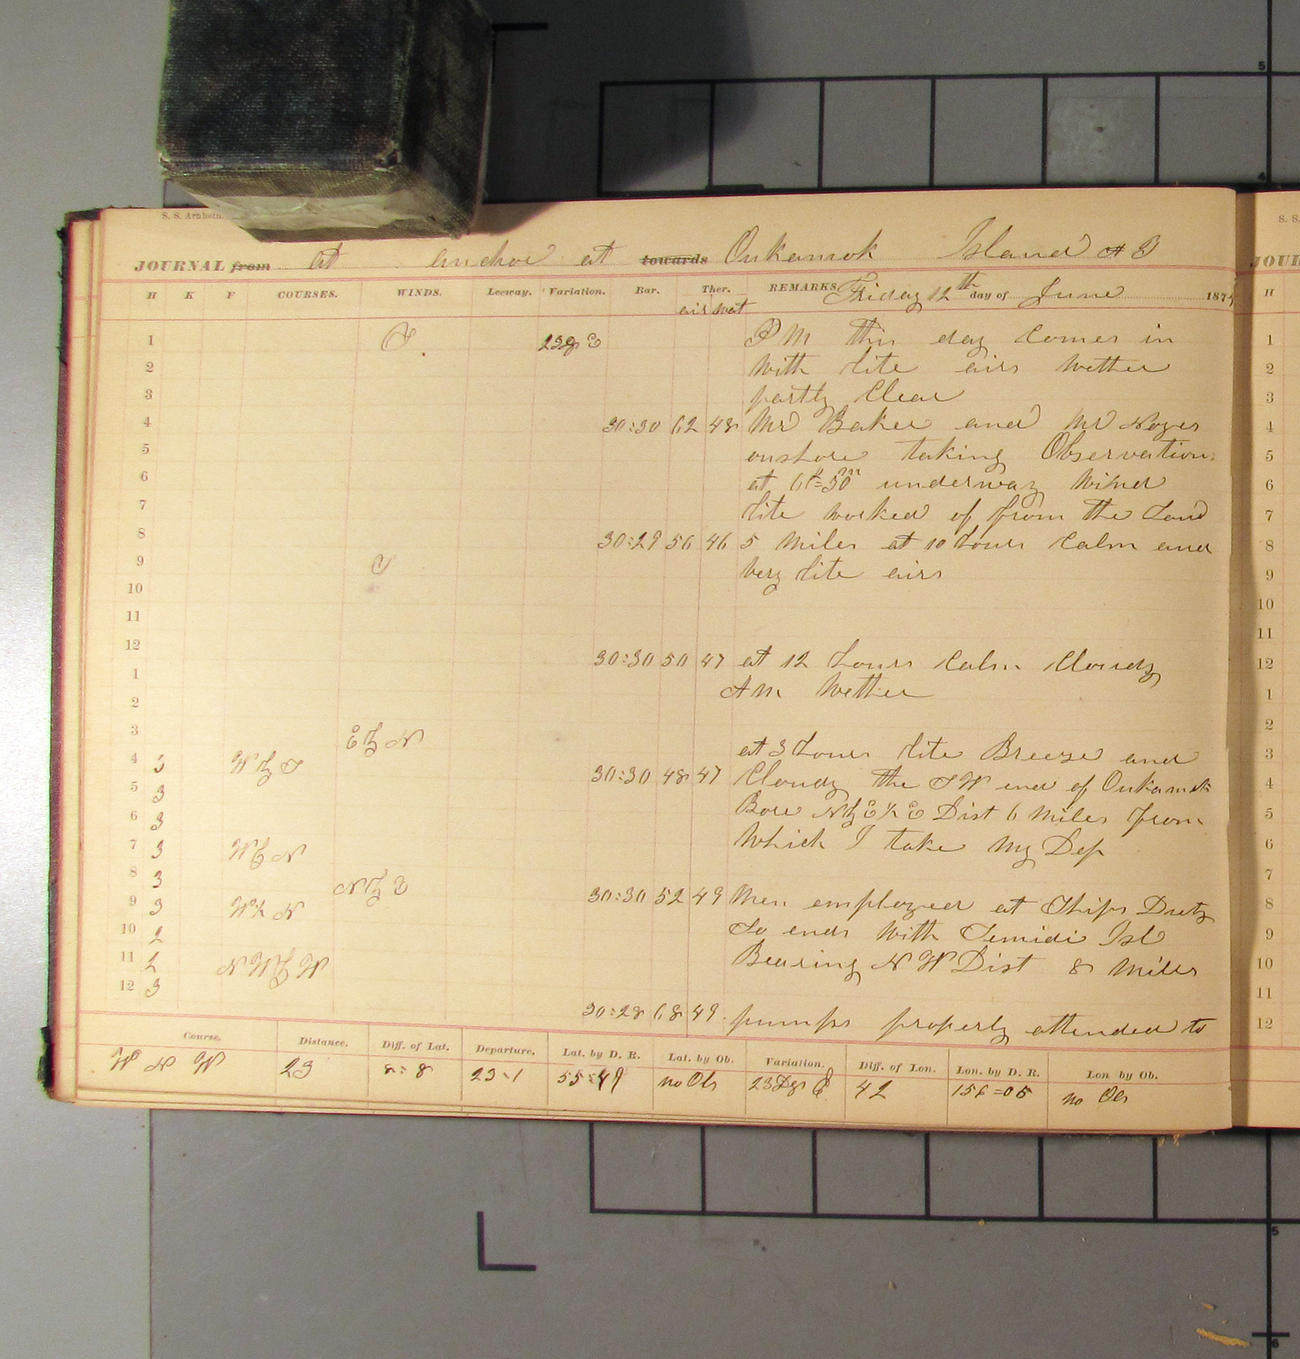 S. S. Arnheim.
JOURNAL from at anchor at towards Oukamok Island A T
H K F COURSES. WINDS. Leeway. Variation. Bar. Ther. REMARKS, Friday 12th day of June 187
air wat
1 S. 23g E P M this day Comes in
2 With lite airs Wether
3 partly Clear
4 30:30 62 48 Mr Baker and Mr Noyes
5 onshore taking Observation
6 at 6h=30m underway Wind
7 lite worked of from the Land
8 30:29 56 46 5 Miles at 10 hours Calm and
9 C Very lite airs
10
11
12 30:30 50 47 at 12 hours Calm Cloudy
1 A M Wether
2
3 E by N at 3 hours lite Breeze and
4 3 W by S 30:30 48 47 Cloudy the S W end of Oukamok
5 3 Bore N by E ½ E Dist 6 Miles from
6 3 Which I take My Dep
7 3 W by N
8 3 N by E
9 3 W ½ N 30:30 52 49 Men employed at Ships Duty
10 2 So ends With Semidi Isl
11 2 N W by W Bearing N W Dist 8 Miles
12 3
30:28 68 49 pumps properly attended to
Course. Distance. Diff. of Lat. Departure. Lat. by D. R. Lat. by Ob. Variation. Diff. of Lon. Lon. by D. R. Lon by Ob.
W N W 23 8:8 23:1 55:49 no Obs 23Dgr E 42 156=05 no Obs
S. S.
JOUR
H
1
2
3
4
5
6
7
8
9
10
11
12
1
2
3
4
5
6
7
8
9
10
11
12
5
4
5
6